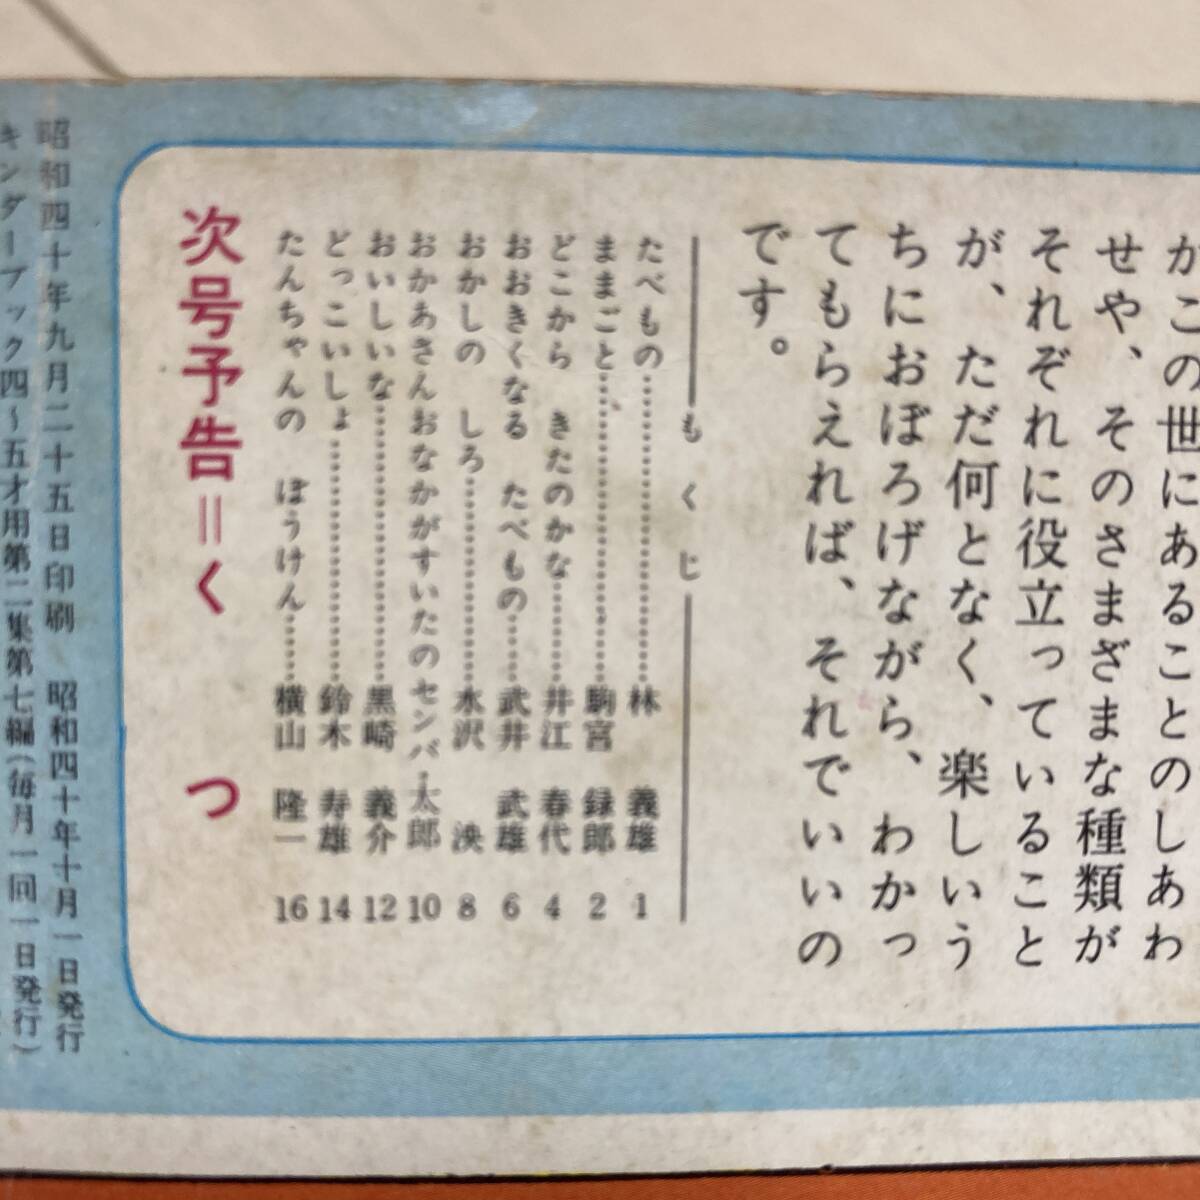 かこの世にあることのしあわ
せや、そのさまざまな種類が
それぞれに役立っていること
が、ただ何となく、楽しいう
ちにおぼろげながら、わかっ
てもらえれば、それでいいの
です。
もくじ
たべもの……林 義雄 1
ままごと……駒宮 録郎 2
どこから きたのかな……井江 春代 4
おおきくなる たべもの……武井 武雄 6
おかしの しろ……水沢 泱 8
おかあさんおなかがすいたのセンバ・太郎 10
おいしいな……黒崎 義介 12
どっこいしょ……鈴木 寿雄 14
たんちゃんの ぼうけん……横山 隆一 16
次号予告=くつ
昭和四十年九月二十五日印刷 昭和四十年十月一日発行
キンダーブック四〜五才用第二集第七編(毎月一回一日発行)